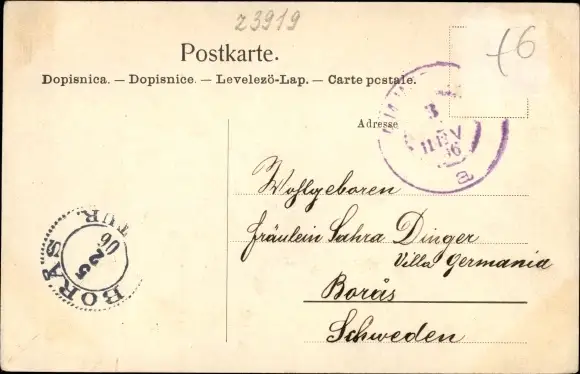 23919
Postkarte.
Dopisnica. — Dopisnice. — Levelező-Lap. — Carte postale.
Adresse
16
Wohlgeboren
Fräulein Sahra Dinger
Villa Germania
Borås
Schweden
BORÅS
TUR.
06
25